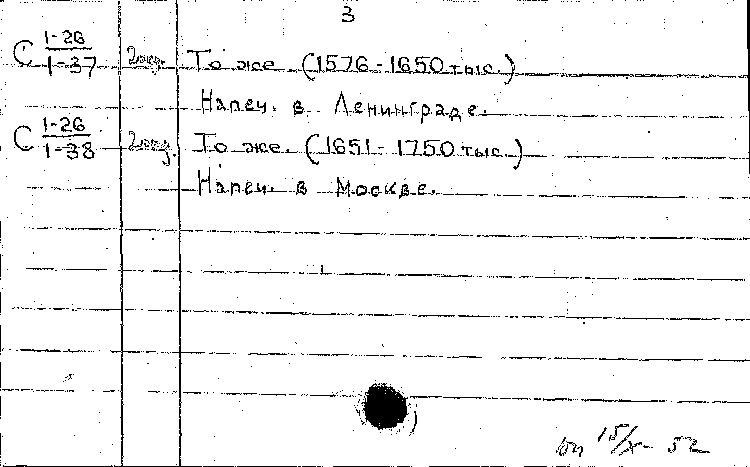 3
С 1-26
1-37 2экз. То же. (1576-1650 тыс.)
Напеч. в Ленинграде.
С 1-26
1-38 2экз. То же. (1651-1750 тыс.)
Напеч. в Москве.
15/X- 52